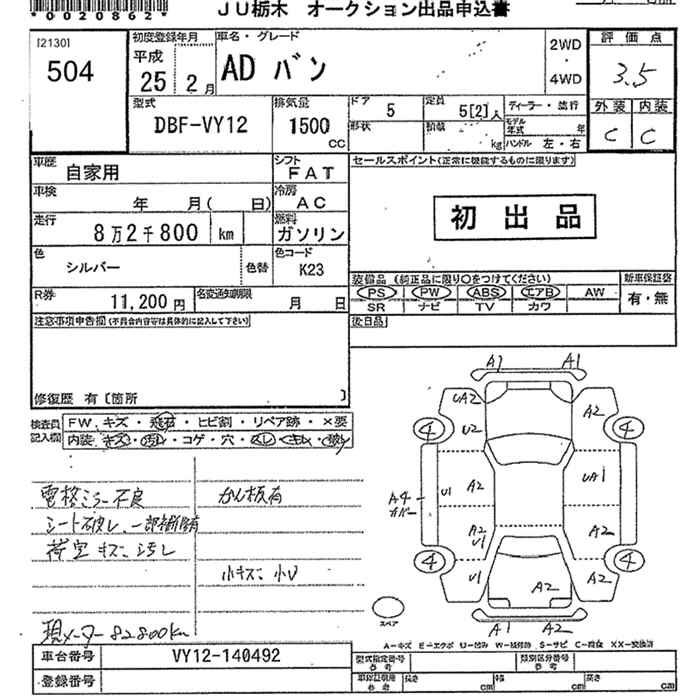 *0020862*
JU栃木 オークション出品申込書
[2130]
504
初度登録年月
平成
25 2 月
車名・グレード
AD バン
2WD
・
4WD
評価点
3.5
型式
DBF-VY12
排気量
1500
CC
ドア 5
形状
定員 5[2]人
積載 kg
ディーラー・並行
モデル年式 年
ハンドル 左・右
外装 内装
C C
車歴 自家用
シフト FAT
車検 年 月( 日)
冷房 AC
走行 8万2千800 km
燃料 ガソリン
色 シルバー 色替
色コード K23
R券 11,200 円
名変通知期限 月 日
セールスポイント(正常に機能するものに限ります)
初出品
装備品 (純正品に限り○をつけてください)
新車保証書
PS PW ABS エアB AW
SR ナビ TV カワ
有・無
後日品
注意事項申告欄(不具合内容等は具体的に記入して下さい)
修復歴 有 [箇所 ]
検査員
記入欄
FW、キズ・飛石・ヒビ割・リペア跡・×要
内装、キズ・汚レ・コゲ・穴・スレ
電格ミラー不良
シート破レ、一部補修有
荷室キズ、汚レ
かん板有
小キズ、小U
現メーター 82800km
A1 A1
UA2 A2
4 U2 4
U1 A2 UA1
A4
カバー
A2 A2
U1
4 4
U1 A2 A2
スペア
A1 A2
A-キズ E-エクボ U-凹み W-補修跡 S-サビ C-腐食 XX-交換済
車台番号 VY12-140492
登録番号
型式指定番号
参考
類別区分番号
参考
車検証明書
参考
長さ cm 幅 cm 高さ cm